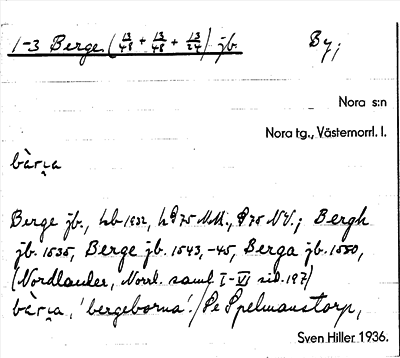 1-3 Berge (13/48 + 13/48 + 13/24) jb. By;
Nora s:n
Nora tg., Västernorrl. l.
bàrɩ̯a
Berge jb., hb 1932,
jb. 1535, Berge jb. 1543, -45, Berga jb. 1550,
(Nordlander, Norrl. saml I-VI sid. 197)
bàrɩ̯a, 'bergeborna'. / Pe Spelmanstorp,
Sven Hiller 1936.